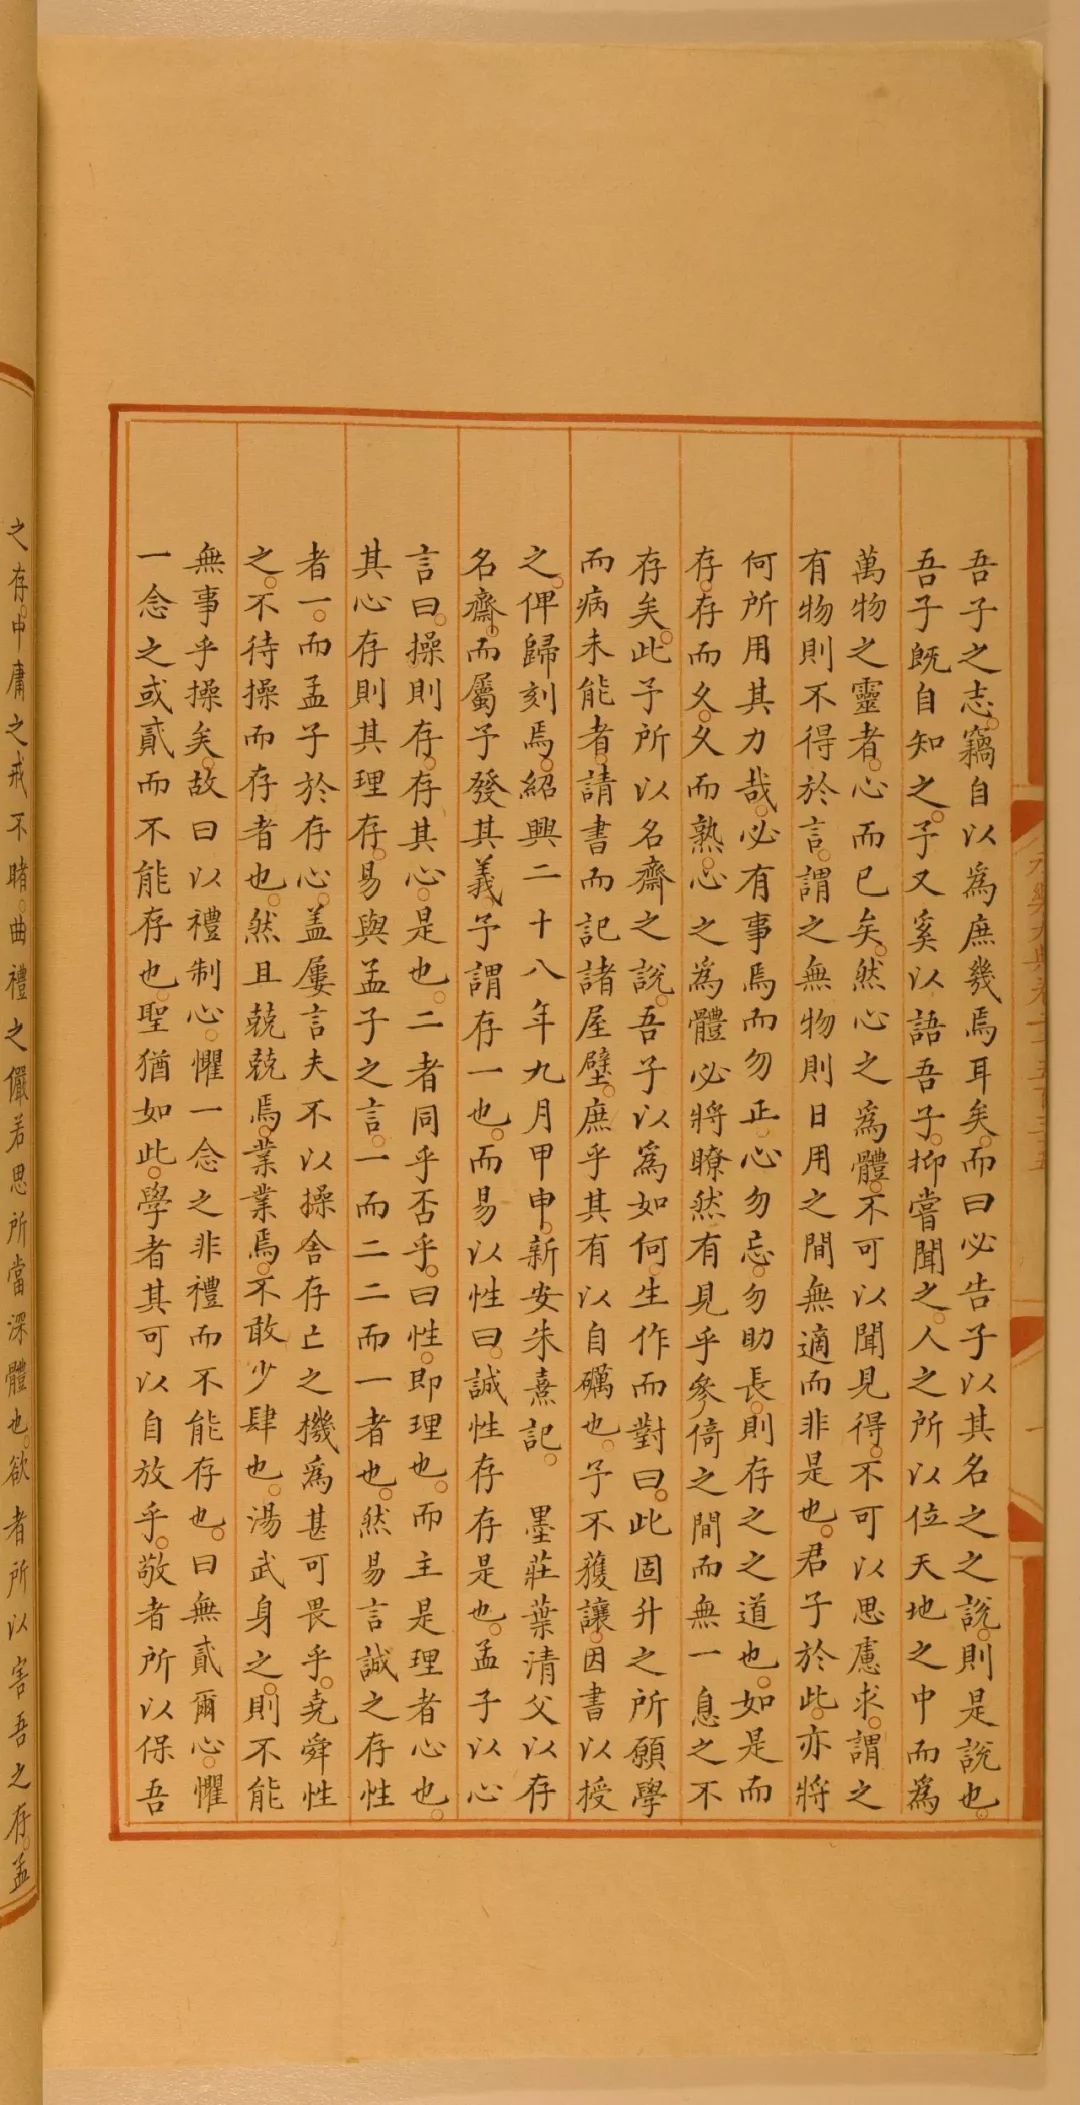 吾子之志。竊自以爲庶幾焉耳矣。而曰必告子以其名之之說。則是說也。
吾子既自知之。予又奚以語吾子。抑嘗聞之。人之所以位天地之中而爲
萬物之靈者。心而已矣。然心之爲體。不可以聞見得。不可以思慮求。謂之
有物則不得於言。謂之無物則日用之間無適而非是也。君子於此。亦將
何所用其力哉。必有事焉而勿正。心勿忘。勿助長。則存之之道也。如是而
存。存而久。久而熟。心之爲體必將瞭然有見乎參倚之間而無一息之不
存矣。此予所以名齋之說。吾子以爲如何。生作而對曰。此固升之所願學
而病未能者。請書而記諸屋壁。庶乎其有以自礪也。予不獲讓。因書以授
之。俾歸刻焉。紹興二十八年九月甲申。新安朱熹記。 墨莊葉清父以存
名齋。而屬予發其義。予謂存一也。而易以性曰。誠性存存是也。孟子以心
言曰。操則存。存其心。是也。二者同乎否乎。曰性。即理也。而主是理者心也。
其心存則其理存。易與孟子之言。一而二二而一者也。然易言誠之存性
者一。而孟子於存心。盖屢言夫不以操舍存亡之機爲甚可畏乎。堯舜性
之。不待操而存者也。然且兢兢焉。業業焉。不敢少肆也。湯武身之。則不能
無事乎操矣。故曰以禮制心。懼一念之非禮而不能存也。曰無貳爾心。懼
一念之或貳而不能存也。聖猶如此。學者其可以自放乎。敬者所以保吾
之存。中庸之戒不睹。曲禮之儼若思所當深體也。欲者所以害吾之存。孟